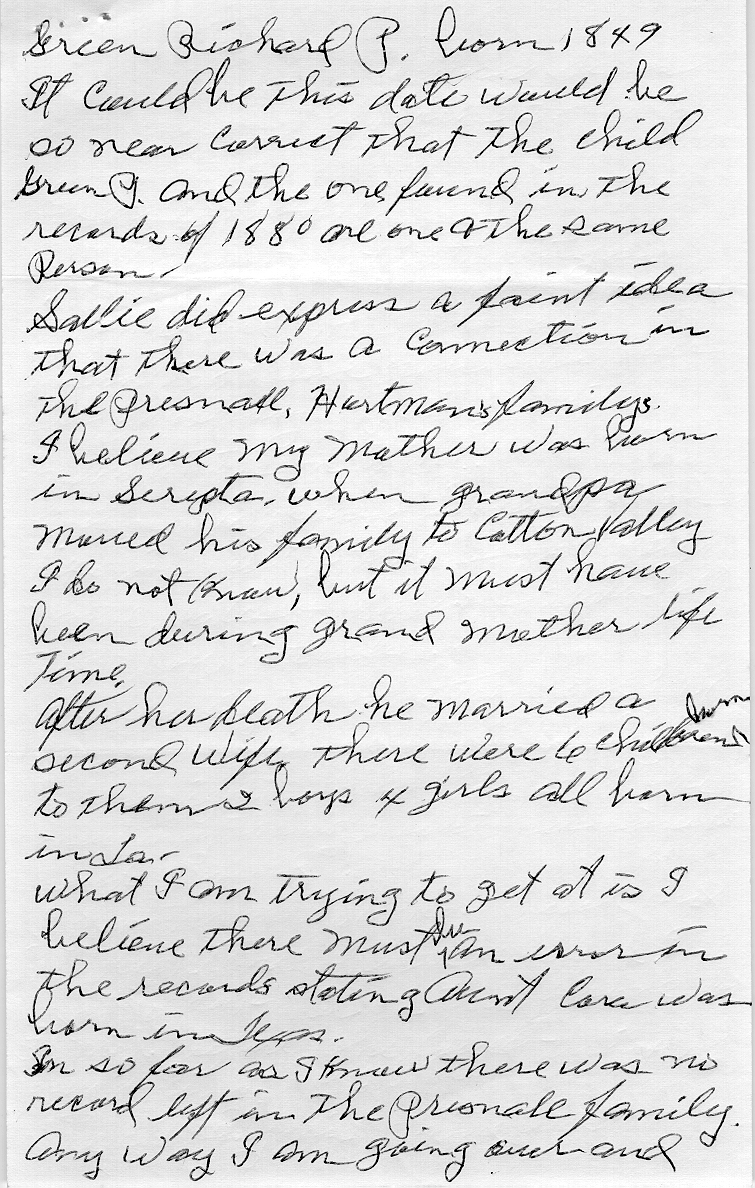 Green Richard P. born 1849
It could be this date would be
so near correct that the child
Green P. and the one found in the
records of 1880 are one & the same
Person.
Sallie did express a faint idea
that there was a connection in
the Presnall, Hartmans familys.
I believe my Mother was born
in Serepta, when grandpa
moved his family to Cotton Valley
I do not know, but it must have
been during grand mother life
Time.
After her death he married a
second wife, there were 6 children born
to them 2 boys 4 girls all born
in La.
What I am trying to get at is I
believe there must be an error in
the records stating Aunt Cora was
born in Texas.
In so far as I know there was no
record left in the family.
Any way I am going over and